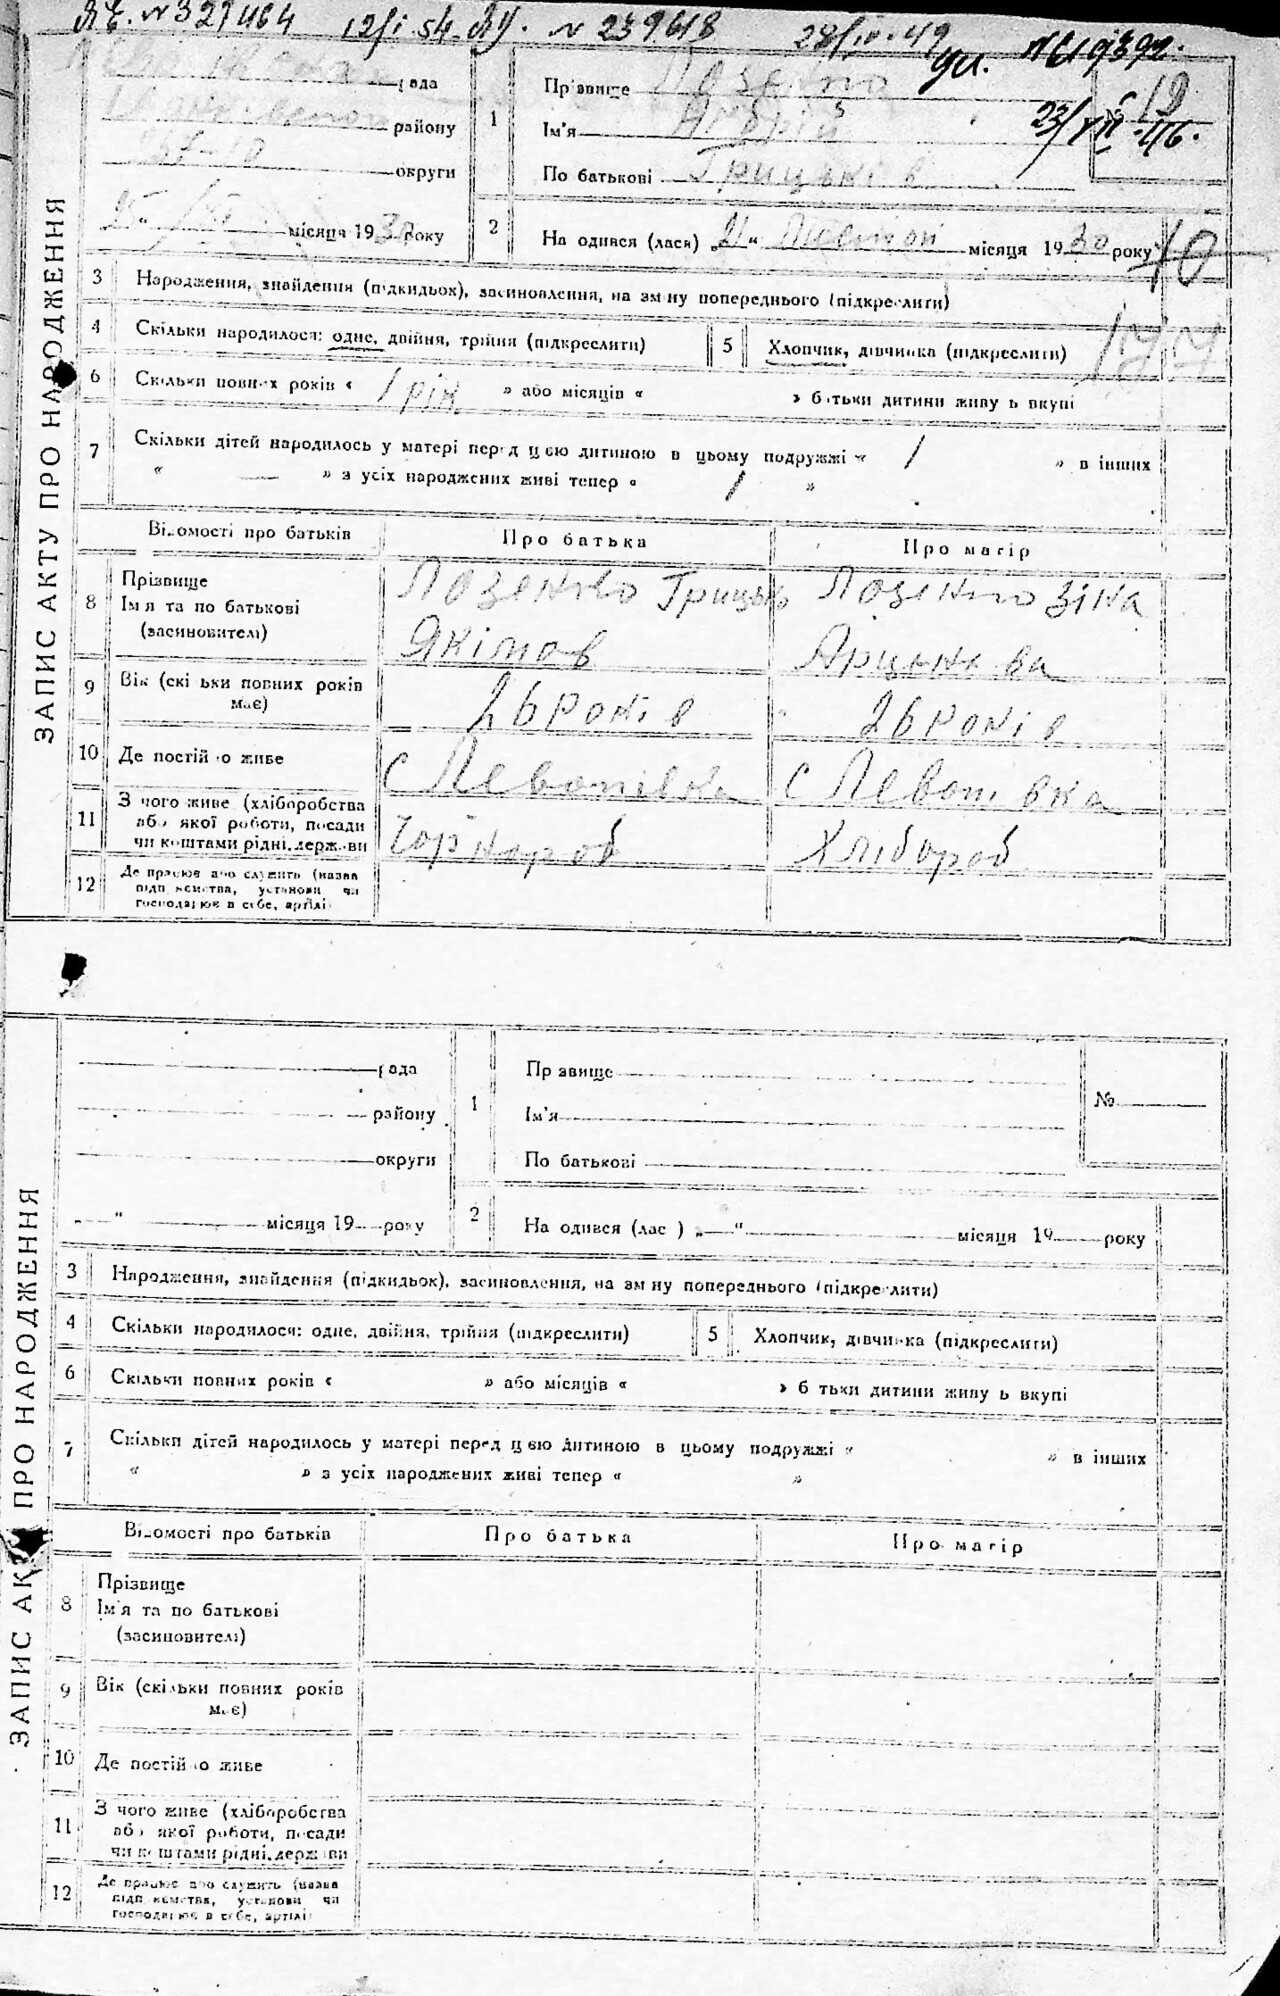 N 327464 12/I 54. N 239618 28/IV-49
ЗАПИС АКТУ ПРО НАРОДЖЕННЯ
рада
району
округи
місяця 1930 року
1
Прізвище
Ім'я Андрій
По батькові Грицьків
№ 19
23/VII-46.
2
На одився (лася) 21 " місяця 1930 року
3 Народження, знайдення (підкидьох), засиновлення, на зм ну попереднього (підкреслити)
4 Скільки народилося: одне, двійня, трійня (підкреслити)
5 Хлопчик, дівчинка (підкреслити)
6 Скільки повних років « 1 рік » або місяців « » б тьки дитини живу ь вкупі
7 Скільки дітей народилось у матері перед цією дитиною в цьому подружжі « 1 » в інших
« — » з усіх народжених живі тепер « 1 »
Відомості про батьків Про батька Про матір
8 Прізвище
Ім'я та по батькові
(засиновителі)
Лозенко Грицько
Якімов
Лозенко Зіна
9 Вік (скі ьки повних років має)
26 років
26 років
10 Де постій о живе
с Левонівка
с Левонівка
11 З чого живе (хліборобства
або якої роботи, посади
чи коштами рідні, держави
Чорнороб
Хлібороб
12 Де працює або служить (назва
підп иємства, установи чи
господарює в себе, артілі
ЗАПИС АКТ ПРО НАРОДЖЕННЯ
рада
району
округи
" місяця 19 року
1
Пр звище
Ім'я
По батькові
№
2
На одився (лас ) „ " місяця 19 року
3 Народження, знайдення (підкидьок), засиновлення, на зм ну попереднього (підкреслити)
4 Скільки народилося: одне, двійня, трійня (підкреслити)
5 Хлопчик, дівчинка (підкреслити)
6 Скільки повних років « » або місяців « » б тьки дитини живу ь вкупі
7 Скільки дітей народилось у матері перед цією дитиною в цьому подружжі « » в інших
« » з усіх народжених живі тепер « »
Відомості про батьків Про батька Про матір
8 Прізвище
Ім'я та по батькові
(засиновителі)
9 Вік (скільки повних років
має)
10 Де постій о живе
11 З чого живе (хліборобства
або якої роботи, посади
чи коштами рідні, держави
12 Де працює або служить (назва
підп иємства, установи чи
господарює в себе, артілі